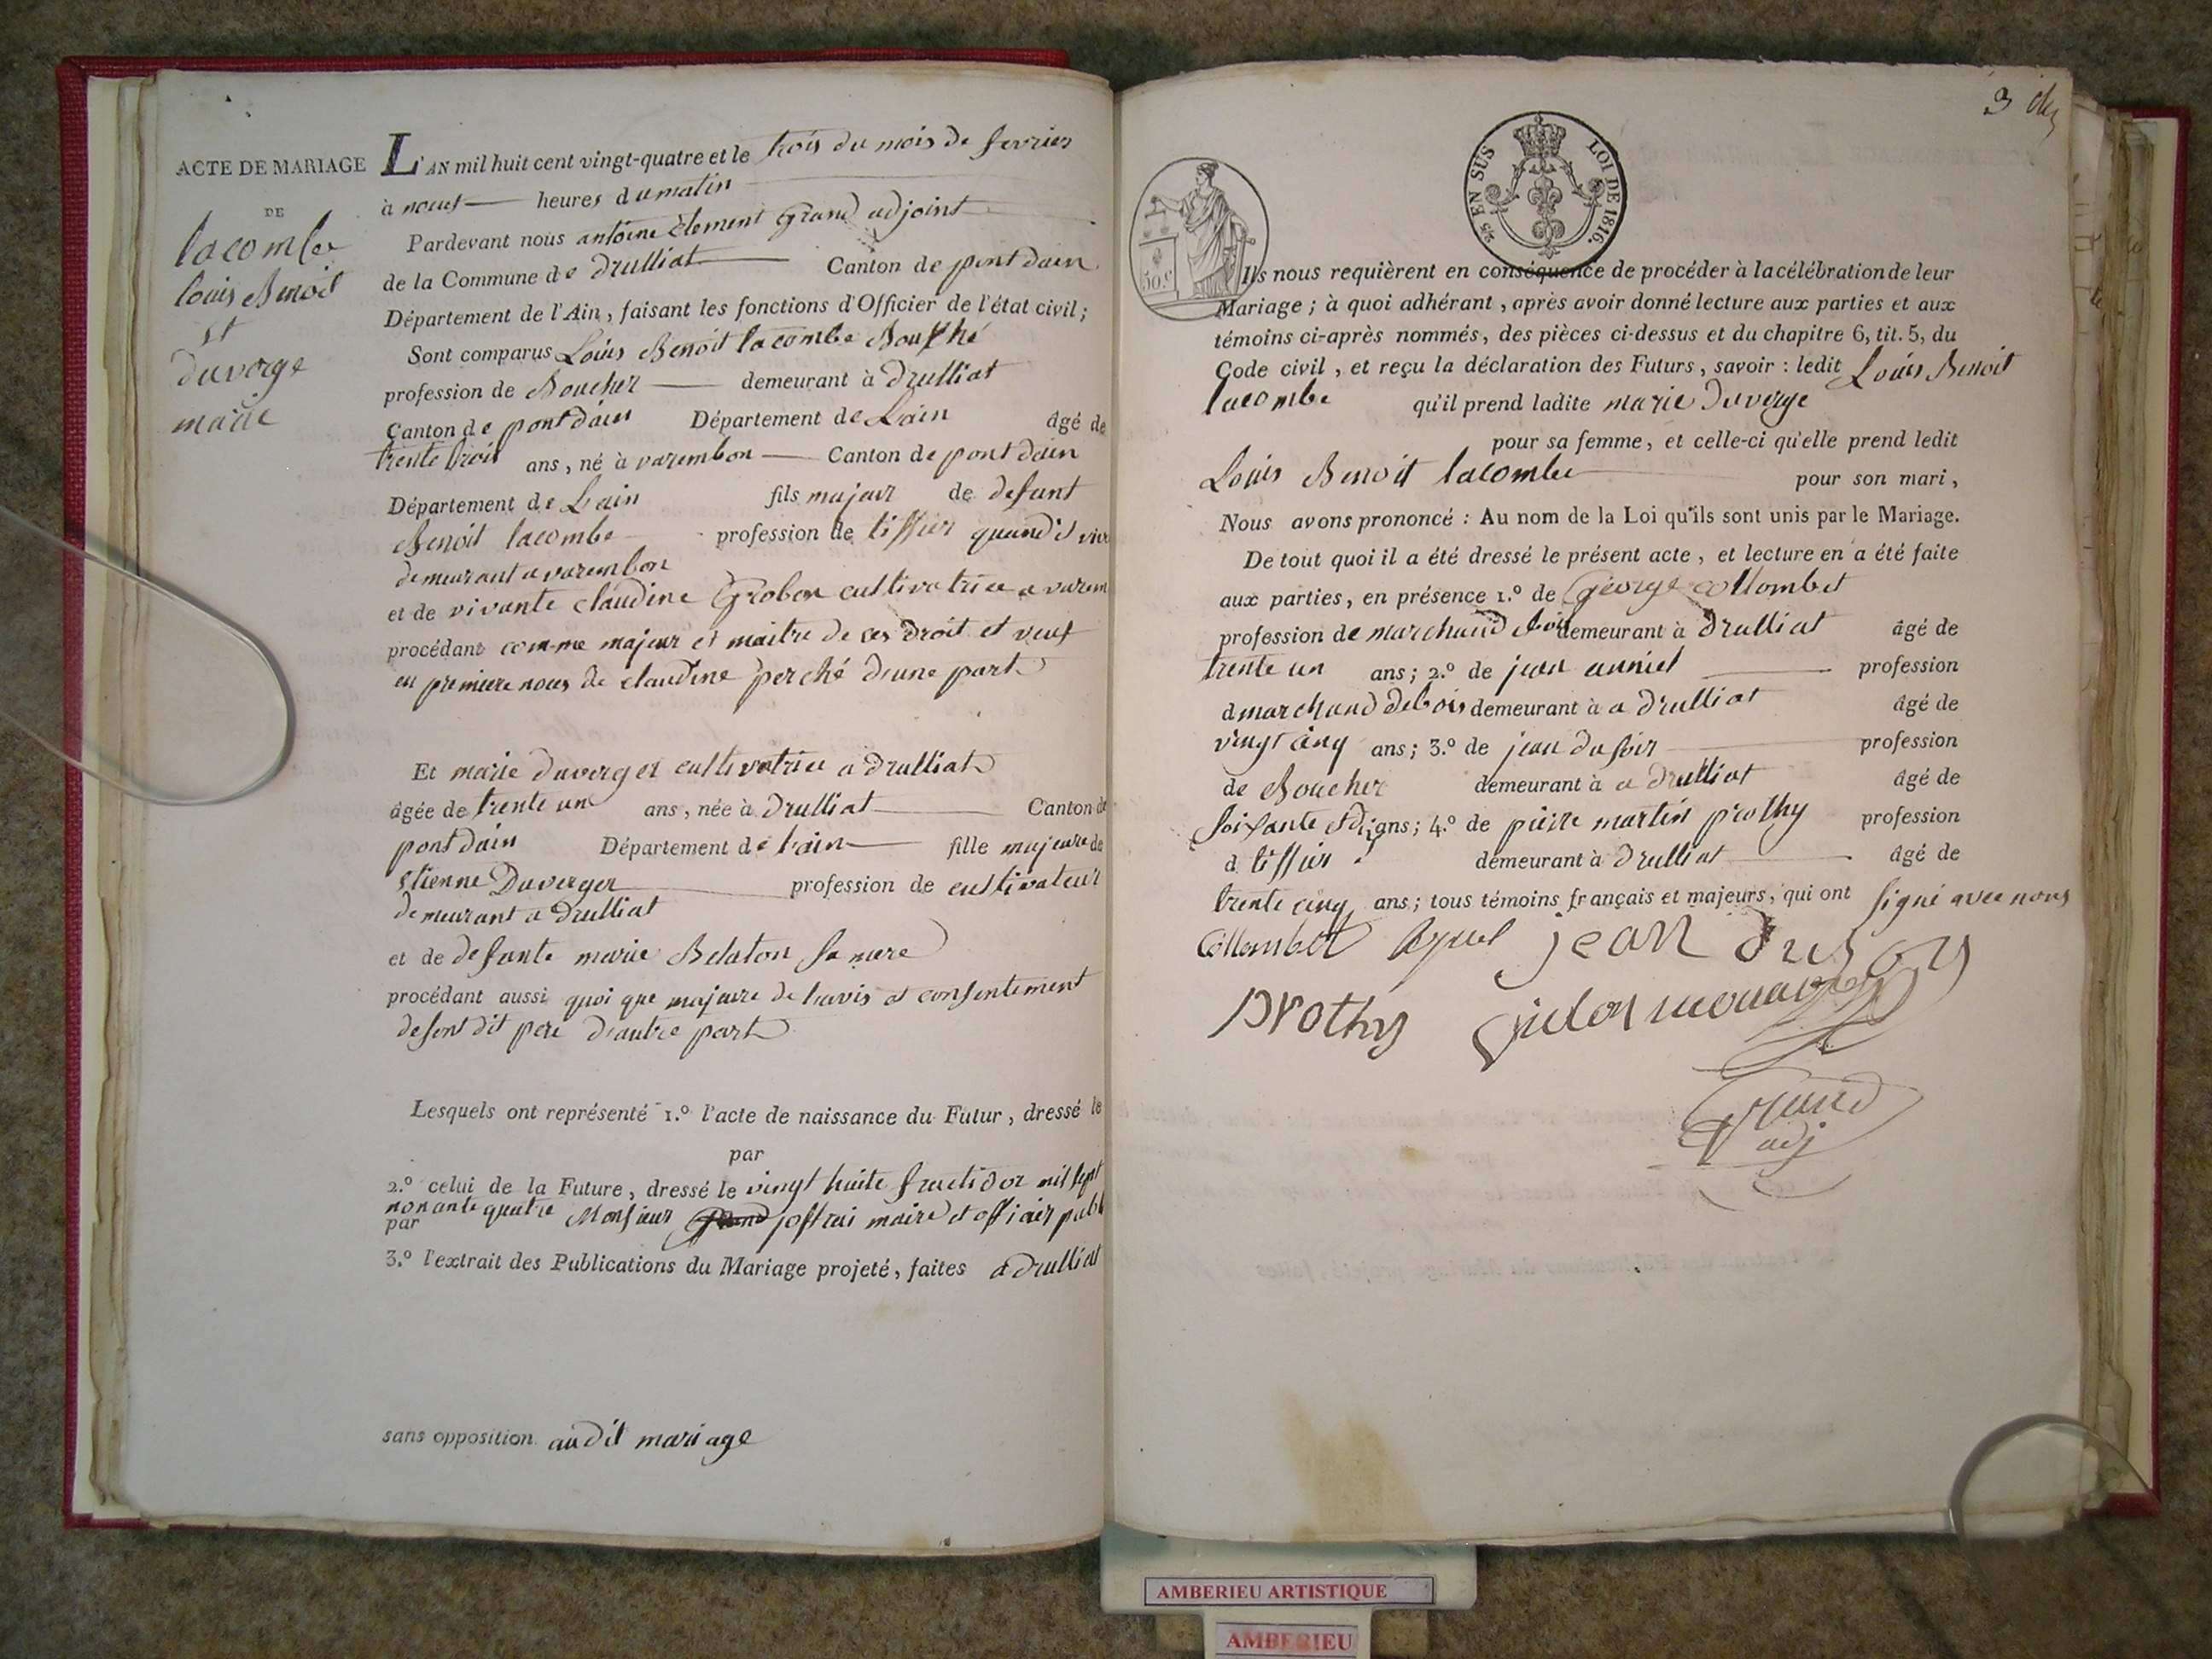 ACTE DE MARIAGE
DE
lacombe
louis Benoit
et
duverge
marie
L'AN mil huit cent vingt-quatre et le trois du mois de fevrier
à neuf heures du matin
Pardevant nous antoine Clement Grand adjoint
de la Commune de Drulliat Canton de pont dain
Département de l'Ain, faisant les fonctions d'Officier de l'état civil;
Sont comparus Louis Benoit lacombe
profession de Boucher demeurant à drulliat
Canton de pont dain Département de Lain âgé de
trente trois ans, né à varembon Canton de pont dain
Département de Lain fils majeur de defunt
Benoit lacombe profession de tissier quand il
demeurant a varembon
et de vivante claudine Grobon cultivatrice a varem
procédant comme majeur et maitre de ces droit et veuf
en premiere noces de claudine perché d'une part
Et marie duverger cultivatrice a drulliat
âgée de trente un ans, née à drulliat Canton de
pont dain Département de lain fille majeure de
Etienne Duverger profession de cultivateur
demeurant a Drulliat
et de defunte marie Belaton sa mere
procédant aussi quoi que majeure de lavis et consentement
de son dit pere d'autre part
Lesquels ont représenté 1.º l'acte de naissance du Futur, dressé le
par
2.º celui de la Future, dressé le vingt huite fructidor mil sept
nonante quatre Monsieur joffrai maire et officier publ
par
3.º l'extrait des Publications du Mariage projeté, faites a drulliat
sans opposition audit mariage
3
25 EN SUS
LOI DE 1816.
50.c
Ils nous requièrent en conséquence de procéder à la célébration de leur
Mariage; à quoi adhérant, après avoir donné lecture aux parties et aux
témoins ci-après nommés, des pièces ci-dessus et du chapitre 6, tit. 5, du
Code civil, et reçu la déclaration des Futurs, savoir : ledit Louis Benoit
lacombe qu'il prend ladite marie Duverge
pour sa femme, et celle-ci qu'elle prend ledit
Louis Benoit lacombe pour son mari,
Nous avons prononcé : Au nom de la Loi qu'ils sont unis par le Mariage.
De tout quoi il a été dressé le présent acte, et lecture en a été faite
aux parties, en présence 1.º de George collombet
profession de marchand demeurant à Drulliat âgé de
trente un ans; 2.º de jean profession
d marchand de bois demeurant à a Drulliat âgé de
vingt cinq ans; 3.º de jean dufoir profession
de Boucher demeurant à a drulliat âgé de
soixante et dix ans; 4.º de pierre martin prothy profession
d tissier demeurant à drulliat âgé de
trente cinq ans; tous témoins français et majeurs, qui ont signé avec nous
Collombet jean
prothy
Grand
adj
AMBERIEU ARTISTIQUE
AMBERIEU